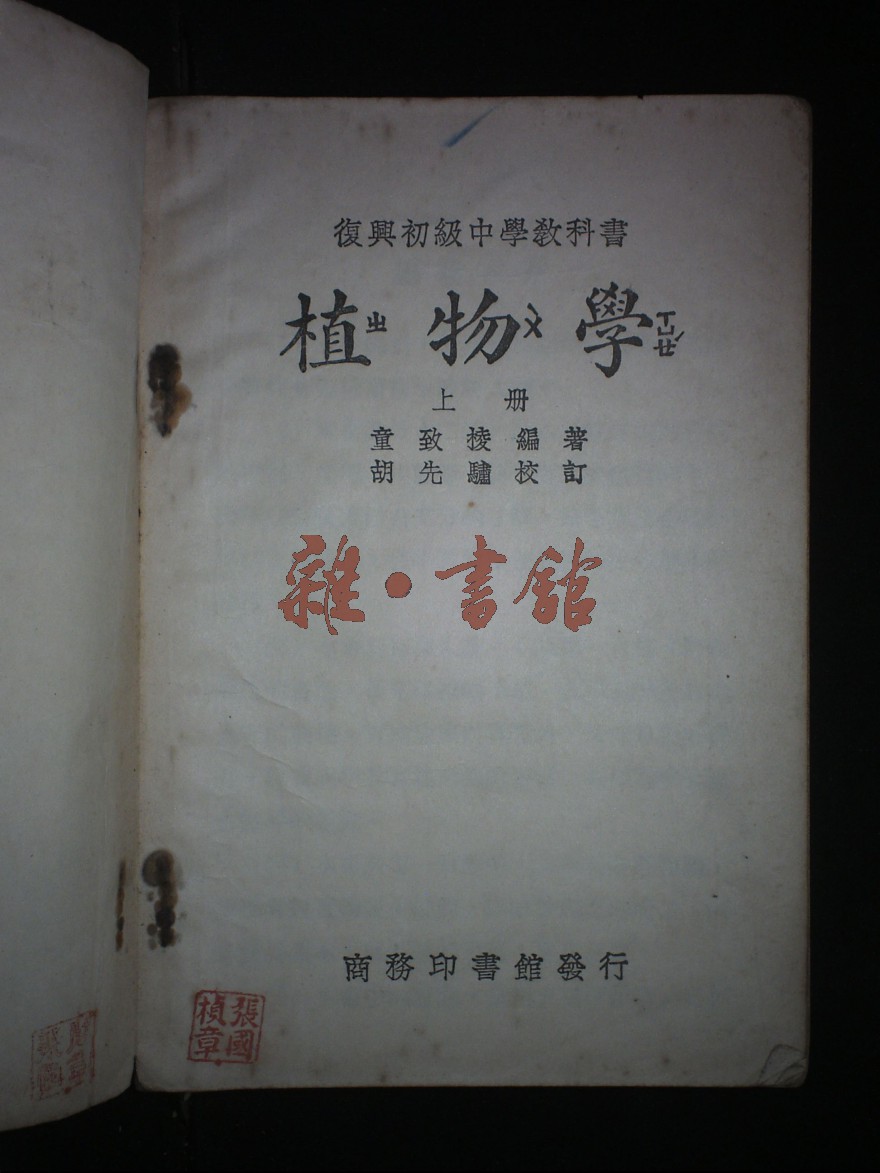 復興初級中學教科書
植ㄓ 物ㄨˋ 學ㄒㄩㄝˊ
上册
童致㨂編著
胡先驌校訂
雜·書館
商務印書館發行
張國楨章